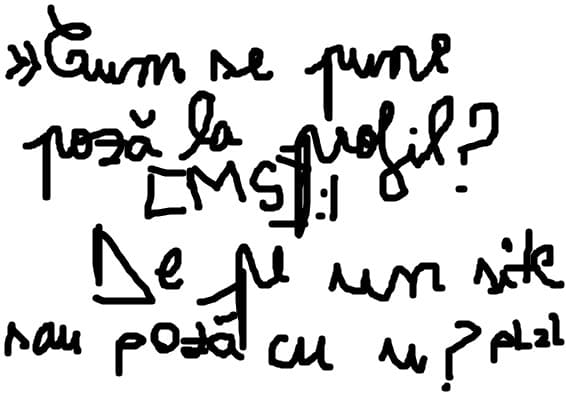 »Cum se pune
poză la profil?
[MS]:|
De pe un site
sau poză cu u? pLzzl